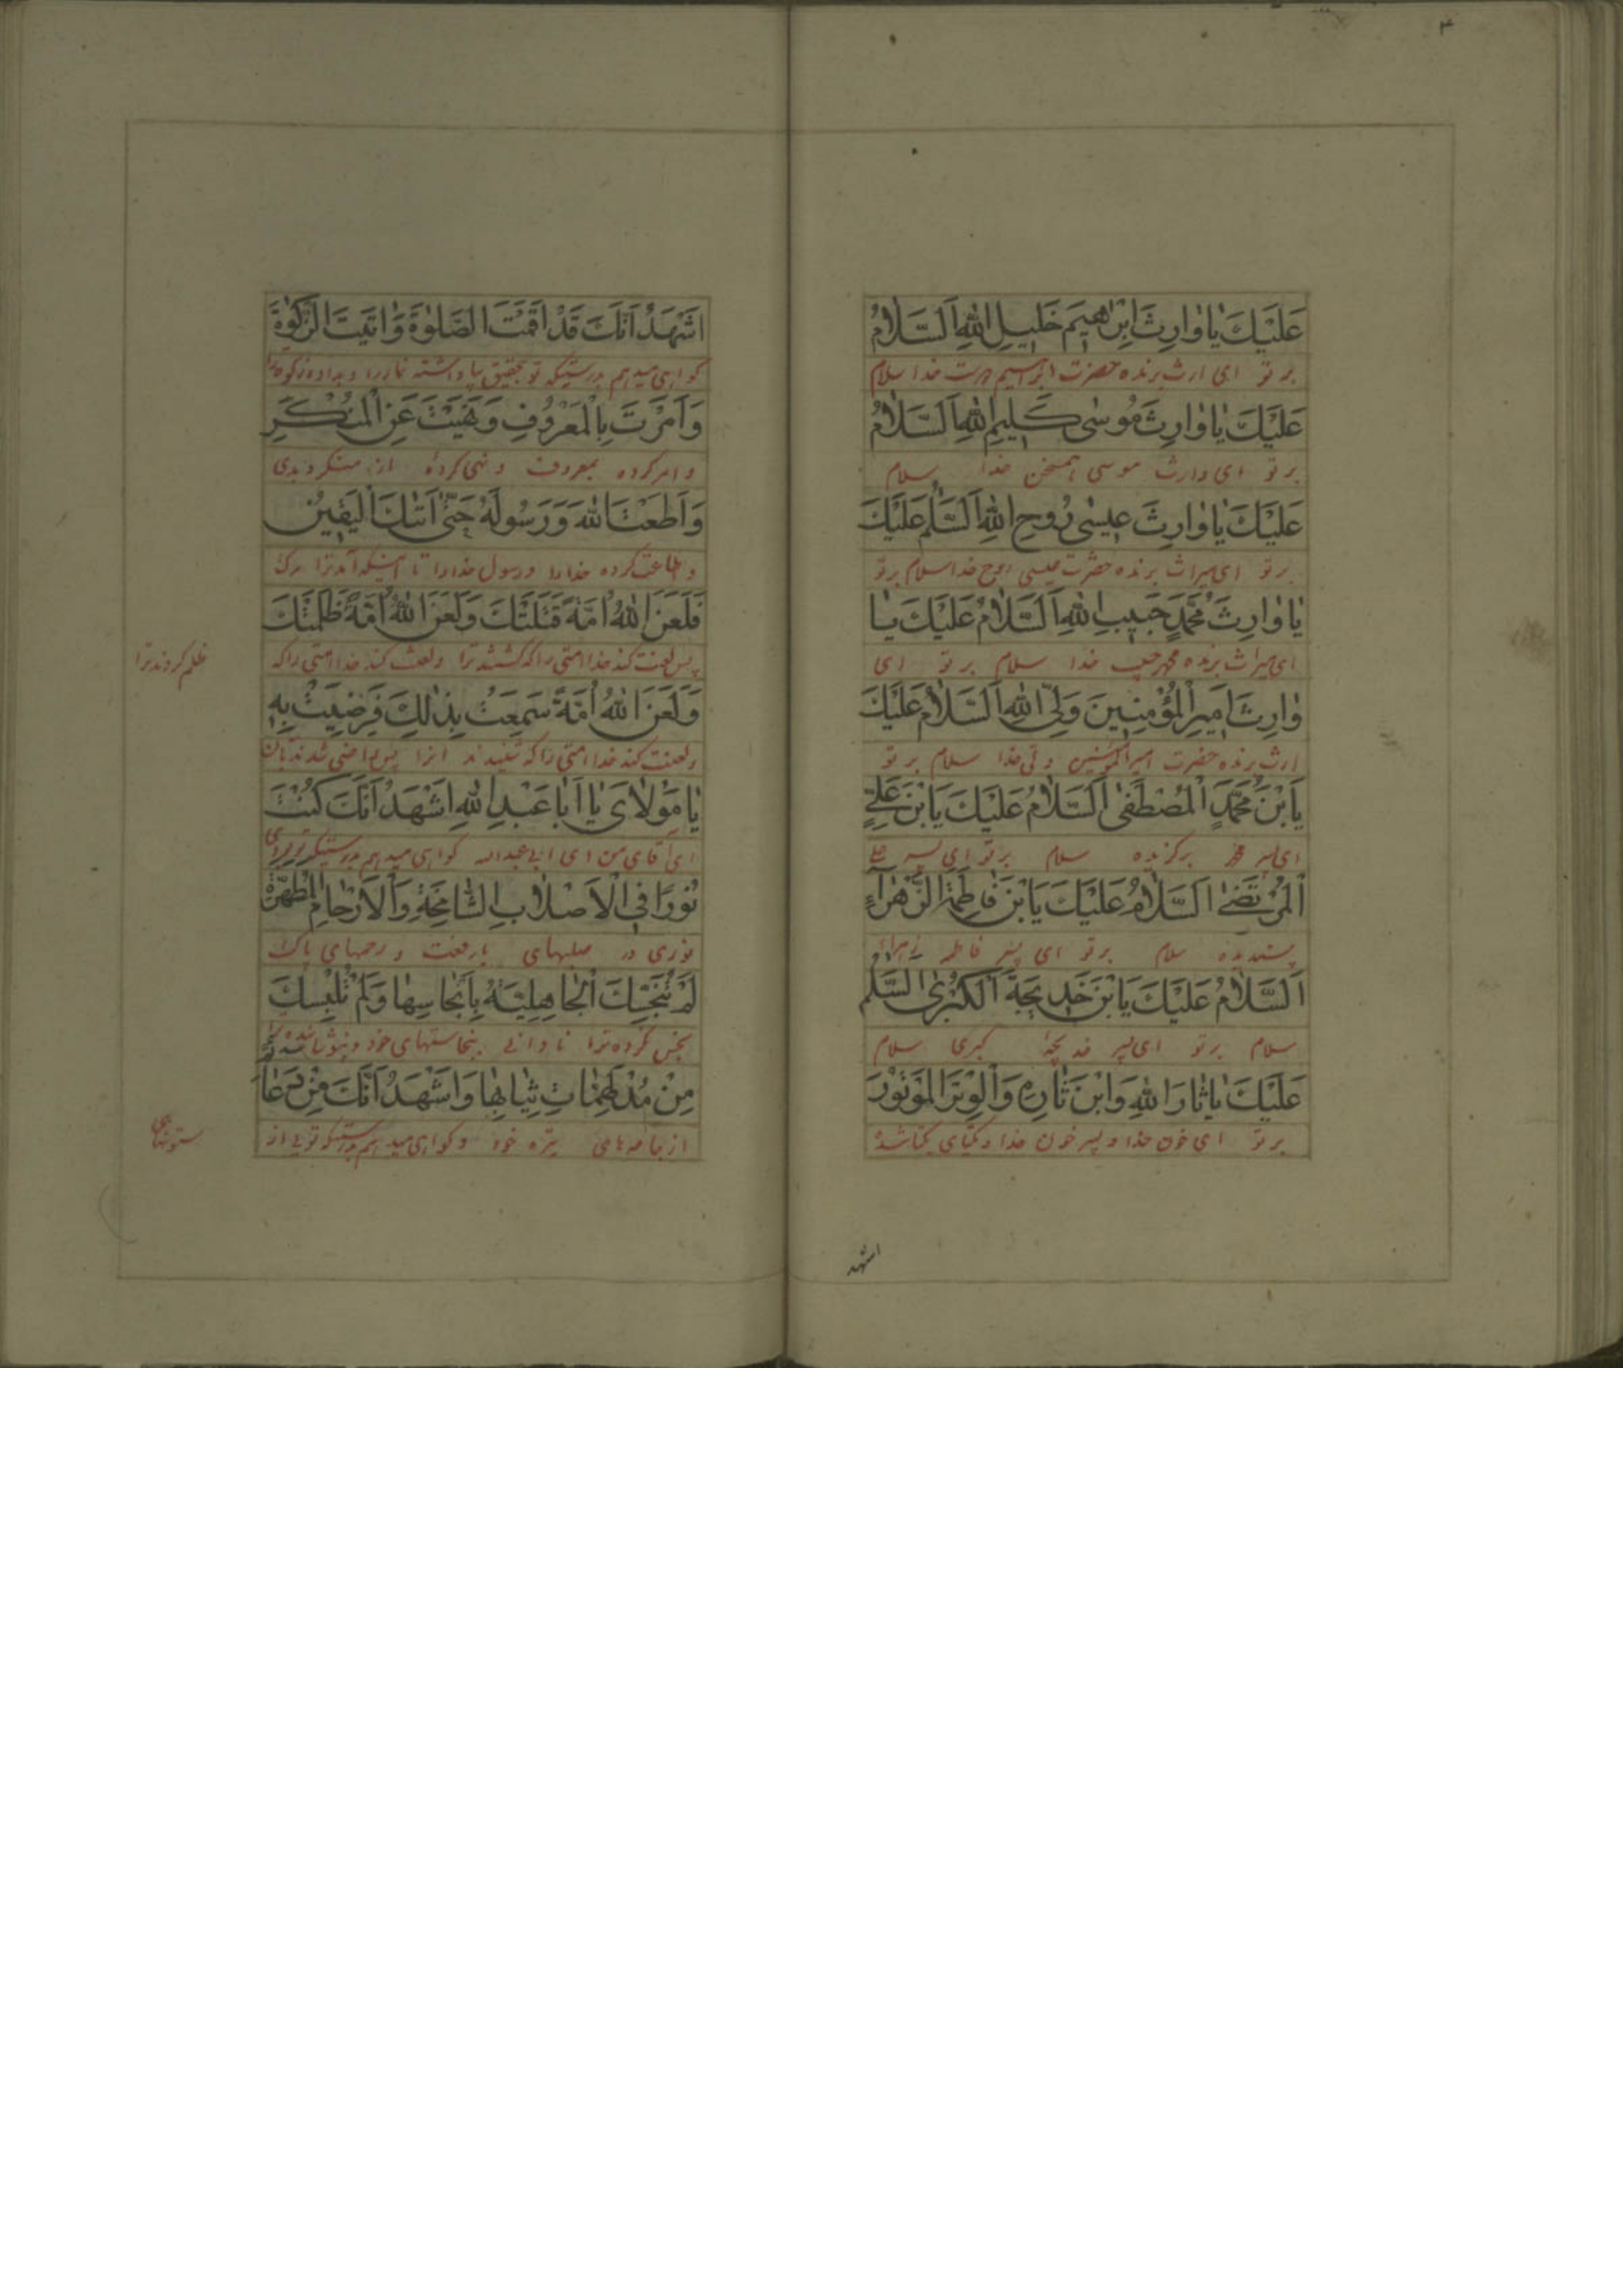 ۴
عَلَيْكَ يٰا وٰارِثَ اِبْرٰهيٖمَ خَليٖلِ اللهِ اَلسَّلٰامُ
بر تو ای ارث برنده حضرت ابراهیم دوست خدا سلام
عَلَيْكَ يٰا وٰارِثَ مُوسٰى كَليٖمِ اللهِ اَلسَّلٰامُ
بر تو ای وارث موسی همسخن خدا سلام
عَلَيْكَ يٰا وٰارِثَ عيٖسٰى رُوحِ اللهِ اَلسَّلٰمُ عَلَيْكَ
بر تو ای میراث برنده حضرت عیسی روح خدا سلام برتو
يٰا وٰارِثَ مُحَمَّدٍ حَبيٖبِ اللهِ اَلسَّلٰامُ عَلَيْكَ يٰا
ای میراث برنده محمد حبیب خدا سلام بر تو ای
وٰارِثَ اَميٖرِ الْمُؤْمِنيٖنَ وَلِىِّ اللهِ اَلسَّلٰامُ عَلَيْكَ
ارث برنده حضرت امیرالمؤمنین ولی خدا سلام بر تو
يَابْنَ مُحَمَّدٍ الْمُصْطَفٰى اَلسَّلٰامُ عَلَيْكَ يَابْنَ عَلِىٍّ
ای پسر محمد برگزیده سلام بر تو ای پسر علی
الْمُرْتَضٰى اَلسَّلٰامُ عَلَيْكَ يَابْنَ فٰاطِمَةَ الزَّهْرٰآءِ
پسندیده سلام برتو ای پسر فاطمه زهراء
اَلسَّلٰامُ عَلَيْكَ يَابْنَ خَديٖجَةَ الْكُبْرٰى اَلسَّلٰمُ
سلام برتو ای پسر خدیجهٔ کبری سلام
عَلَيْكَ يٰا ثٰارَ اللهِ وَابْنَ ثٰارِهٖ وَالْوِتْرَ الْمَوْتُوْرَ
بر تو ای خون خدا و پسر خون خدا و یکتای یکتا شده
اشهد
اَشْهَدُ اَنَّكَ قَدْ اَقَمْتَ الصَّلٰوةَ وَاٰتَيْتَ الزَّكٰوةَ
گواهی میدهم بدرستیکه تو بتحقیق بپا داشته نماز را و داده زکوة را
وَاَمَرْتَ بِالْمَعْرُوفِ وَنَهَيْتَ عَنِ الْمُنْكَرِ
و امر کرده بمعروف و نهی کردهٔ از منکر و بدی
وَاَطَعْتَ اللهَ وَرَسُولَهُ حَتّٰى اَتٰيكَ الْيَقيٖنُ
و اطاعت کرده خدا را و رسول خدا را تا اینکه آمد ترا مرگ
فَلَعَنَ اللهُ اُمَّةً قَتَلَتْكَ وَلَعَنَ اللهُ اُمَّةً ظَلَمَتْكَ
پس لعنت کند خدا امتی را که کشتند ترا و لعنت کند خدا امتی را که
ظلم کردند ترا
وَلَعَنَ اللهُ اُمَّةً سَمِعَتْ بِذٰلِكَ فَرَضِيَتْ بِهٖ
و لعنت کند خدا امتی را که شنیدند انرا پس راضی شدند بان
يٰا مَوْلٰاىَ يٰا اَبٰا عَبْدِ اللهِ اَشْهَدُ اَنَّكَ كُنْتَ
ای آقای من ای ابی عبدالله گواهی میدهم بدرستیکه تو بودی
نُورًا فِى الْاَصْلٰابِ الشّٰامِخَةِ وَالْاَرْحٰامِ الْمُطَهَّرَةِ
نوری در صلبهای با رفعت و رحمهای پاک
لَمْ تُنَجِّسْكَ الْجٰاهِلِيَّةُ بِاَنْجٰاسِهٰا وَلَمْ تُلْبِسْكَ
نجس نکرده ترا نادانی بنجاستهای خود و نپوشانیده
مِنْ مُدْلَهِمّٰاتِ ثِيٰابِهٰا وَاَشْهَدُ اَنَّكَ مِنْ دَعٰا
از جامه های تیره خود و گواهی میدهم بدرستیکه توئی از
ستونهای